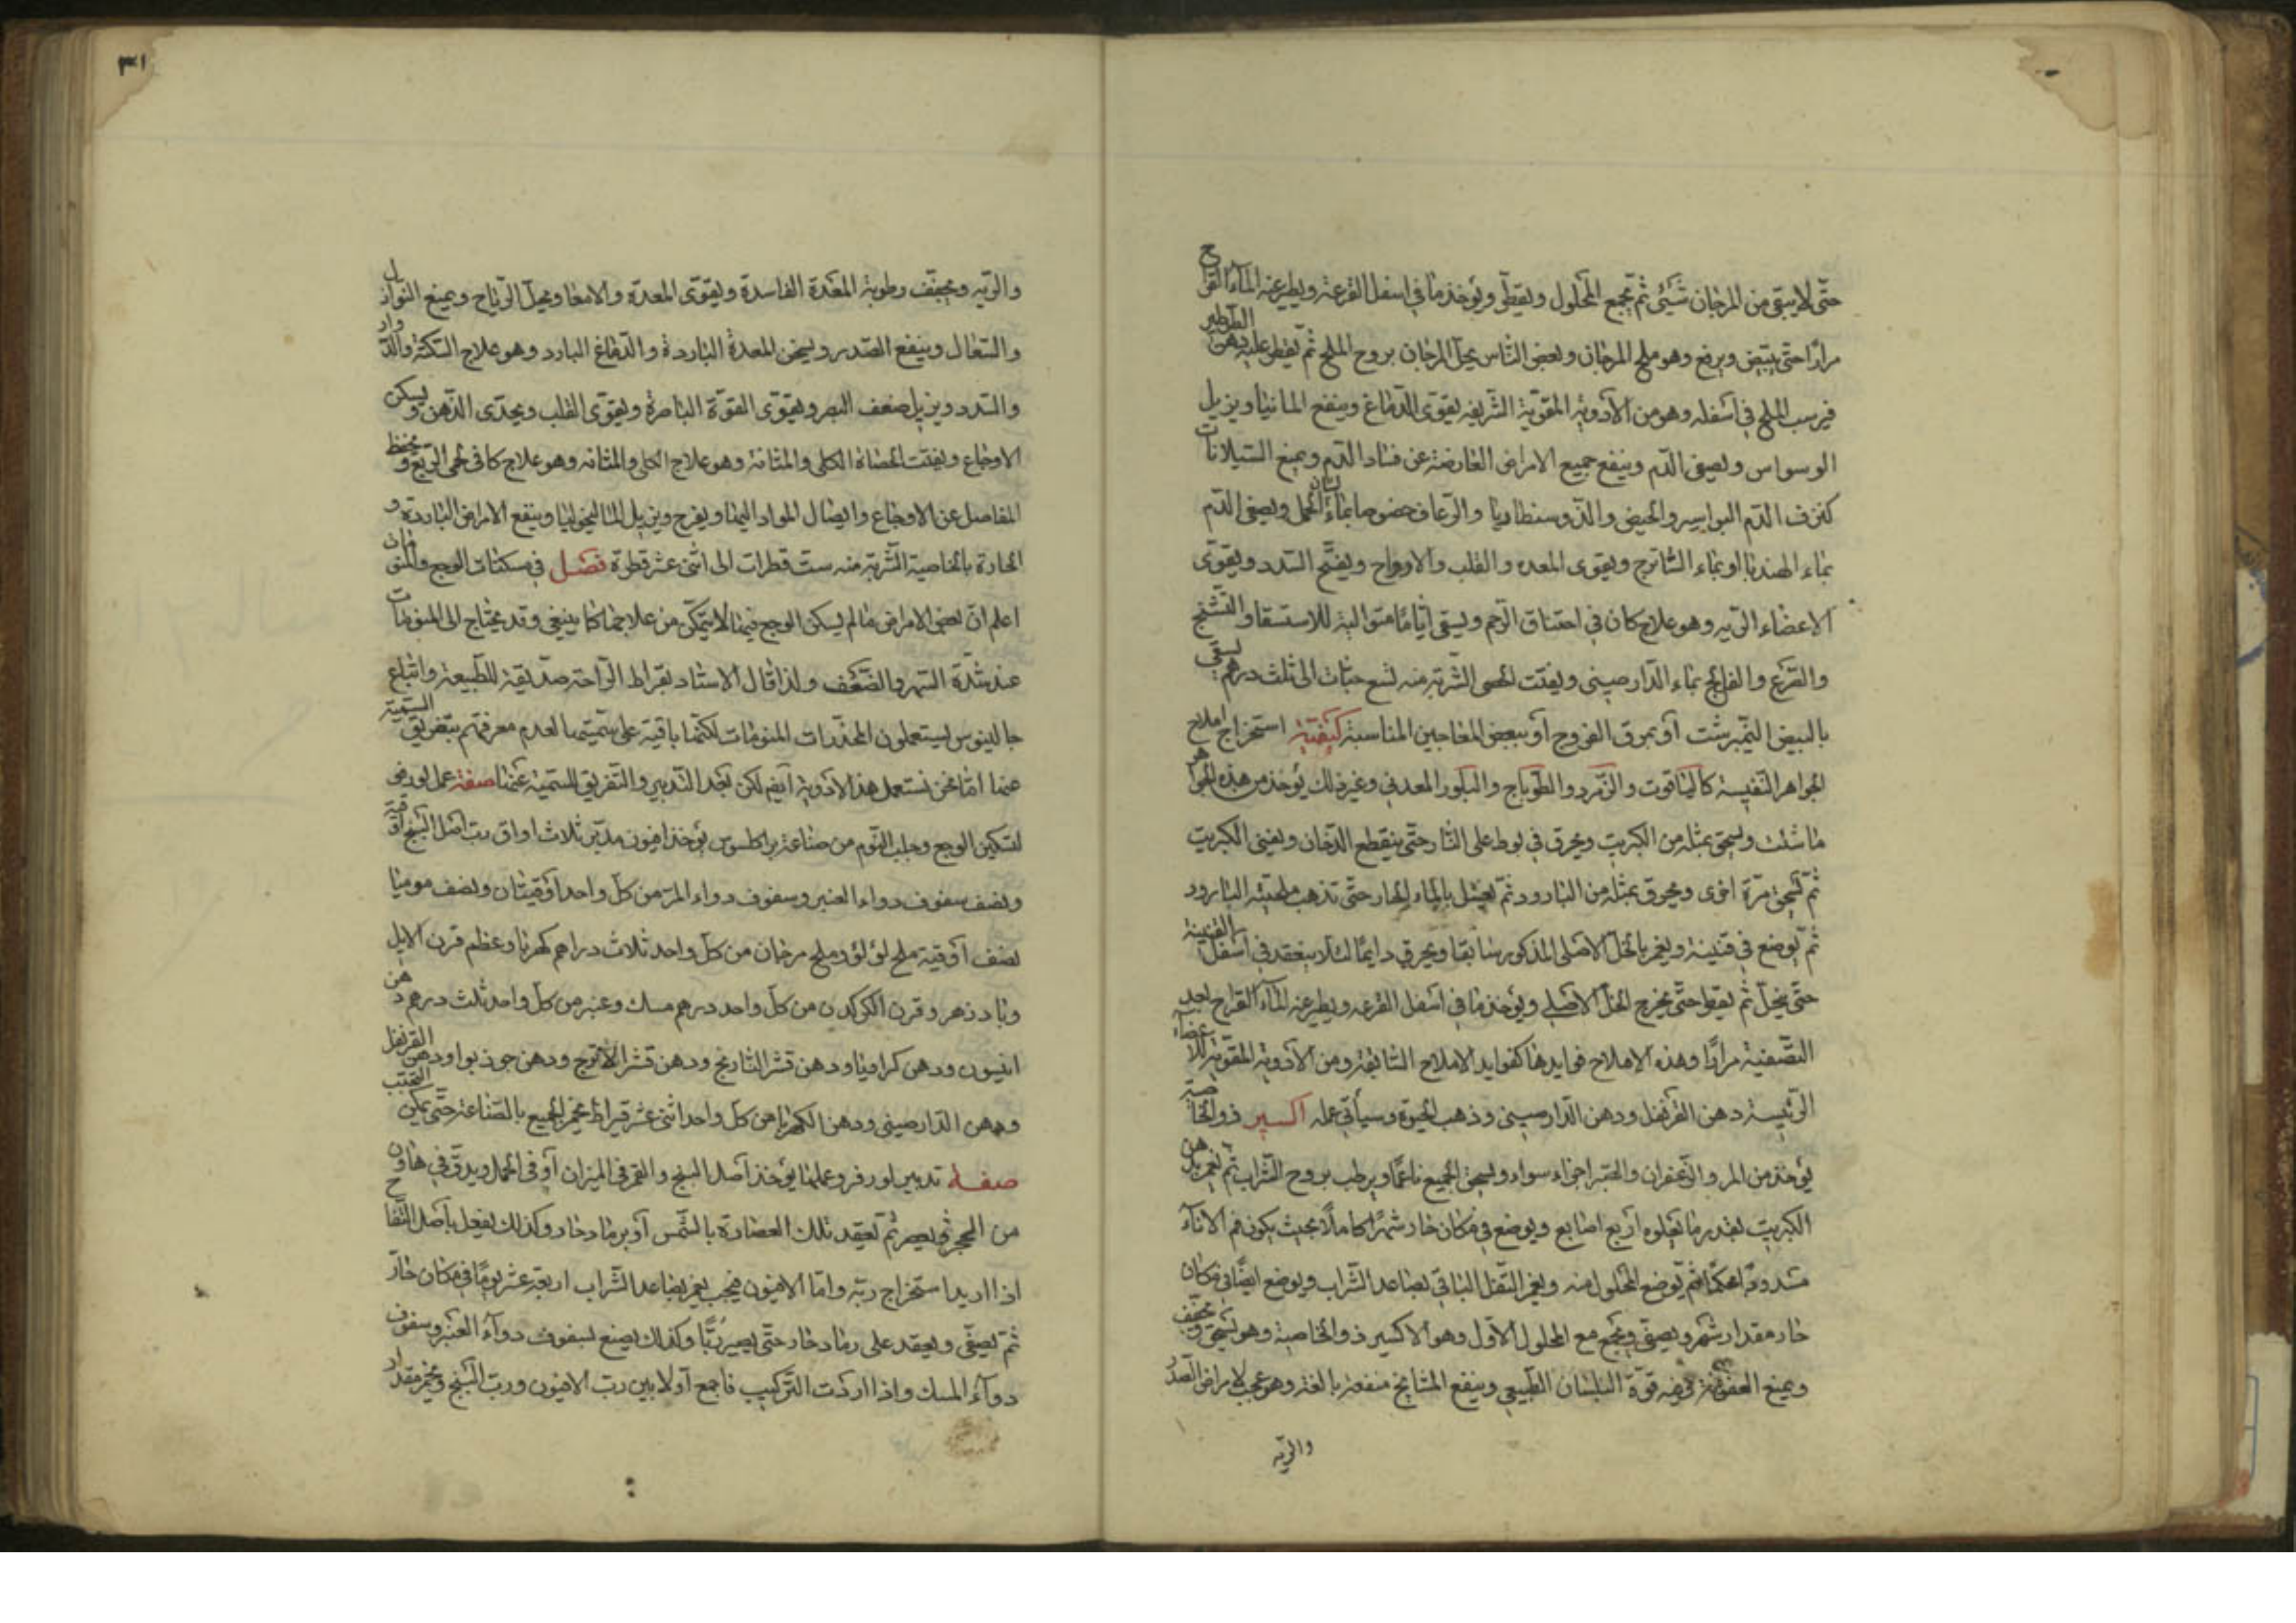 حتى لا يبقى من المرجان شيئ ثم تجمع المحلول ويقطر ويؤخذ ما في اسفل القرعة ويطبر عنه المآء القراح
مرارًا حتى يبيض ويرفع وهو ملح المرجان وبعض الناس يحل المرجان بروح الملح ثم يقطر عليه دهن الطرطير
فيرسب الملح في أسفله وهو من الأدوية المقوية الشريفة يقوى الدماغ وينفع المانيا ويزيل
الوسواس ويصفى الدم وينفع جميع الامراض العارضة عن فساد الدم ويمنع السيلانات
كنزف الدم البواسير والحيض والدوسنطاريا والرعاف خصوصا بماء لسان الحمل ويصفى الدم
بماء الهندبا او بماء الشاترج ويقوى المعده والقلب والارواح ويفتح السدد ويقوى
الاعضاء الريه وهو علاج كاف في اختناق الرحم ويسقى أيامًا متوالية للاستسقا والتشنج
والصرع والفالج بماء الدارصينى ويفتت الحصى الشربة منه تسع حبات الى ثلث درهم يسقى
بالبيض النيمبرشت أو بمرق الفروج أو ببعض المعاجين المناسبة كيفية استخراج املاح
الجواهر النفيسة كالياقوت والزمرد والطوباج والبلور المعدني وغير ذلك يؤخذ من هذه الجواهر
ما شئت ويسحق بمثله من الكبريت ويحرق في بوط على النار حتى ينقطع الدخان ويفنى الكبريت
ثم تسحق مرة اخرى ويحرق بمثله من البارود ثم يغسل بالماء الحار حتى تذهب ملحية البارود
ثم يوضع في قنينة ويغمر بالخل الاصلى المذكور سابقا ويحرك دايمًا لئلا ينعقد في أسفل القنينة
حتى ينحل ثم يقطر حتى يخرج الخل الاصلى ويؤخذ ما في أسفل القرعه ويطبر عنه المآء القراح لاجل
التصفية مرارًا وهذه الاملاح فوايدها كفوايد الاملاح السابقة ومن الأدوية المقوية للأعضاء
الرئيسة دهن القرنفل ودهن الدارصينى وذهب الحيوة وسيأتى عمله اكسير ذو الخاصة
يؤخذ من المر والزعفران والصبر اجزاء سواء ويسحق الجميع ناعمًا ويرطب بروح الشراب ثم يغمر بدهن
الكبريت بقدر ما يعلوه أربع اصابع ويوضع في مكان حار شهرًا كاملًا بحيث يكون فم الاناء
مسدودًا محكمًا ثم يوضع المحلول منه ويغمر الثفل الباقى بصاعد الشراب ويوضع ايضًا في مكان
حار مقدار شهر ويصفى ويجمع مع المحلول الأول وهو الاكسير ذو الخاصية وهو يسخن ويجفف
ويمنع العفونة وفيه قوة البلسان الطبيعى وينفع المشايخ منفعة بالغة وهو عجيب لامراض الصدر
والريه
٣١
والريه ويجفف رطوبة المعدة الفاسدة ويقوى المعدة والامعا ويحلل الرياح ويمنع النوازل
والسعال وينفع الصدر ويسخن المعدة الباردة والدماغ البارد وهو علاج السكتة والدوار
والسدد ويزيل ضعف البصر ويقوى القوة الباصرة ويقوى القلب ويحدى الذهن ويسكن
الاوجاع ويفتت الحصاة الكلى والمثانة وهو علاج الكلى والمثانه وهو علاج كاف في حمى الربع ويحفظ
المفاصل عن الاوجاع وايصال المواد اليها ويفرح ويزيل الماليخوليا وينفع الامراض الباردة و
الحارة بالخاصية الشربة منه ست قطرات الى اثنى عشر قطرة فصل في مسكنات الوجع والمنومات
اعلم ان بعض الامراض ما لم يسكن الوجع فيها لا يتمكن من علاجها كما ينبغى وقد يحتاج الى المنومات
عند شدة السهر والضعف ولذا قال الاستاد بقراط الراحة صديقة للطبيعة واتباع
جالينوس يستعملون المخدرات المنومات لكنها باقية على سميتها لعدم معرفتهم بتفريق السمية
عنها امّا نحن نستعمل هذا الأدوية أيضا لكن بعد التدبير والتفريق للسمية عنها صفة عمل لورفى
لتسكين الوجع وجلب النوم من صناعة براكلسوس يؤخذ افيون مدبر ثلاث اواق رب اصل البنج أوقية
ونصف سفوف دواء العنبر وسفوف دواء المر من كل واحد أوقيتان ونصف موميا
نصف أوقية ملح لؤلؤ وملح مرجان من كل واحد ثلاث دراهم كهربا وعظم قرن الايل
وبادذهر وقرن الكركدن من كل واحد درهم مسك وعنبر من كل واحد ثلث درهم دهن
انيسون ودهن كراويا ودهن قشر النارنج ودهن قشر الأترج ودهن جوذبوا ودهن القرنفل
ودهن الدارصينى ودهن الكهربا من كل واحد اثنى عشر قيراط يخمر الجميع بالصناعة حتى يمكن التحبب
صفة تدبير لورفر وعملها يؤخذ أصل البنج والقمر في الميزان أو في الحمل ويدق في هاون
من الحجر ويعصر ثم تعقد تلك العصارة بالشمس أو برماد حار وكذلك يفعل بأصل اللفاح
اذا اريد استخراج ربه واما الافيون فيجب يغمر بصاعد الشراب اربعة عشر يومًا في مكان حار
ثم يصفى ويعقد على رماد حار حتى يصير ربًا وكذلك يصنع بسفوف دوآء العنبر وسفوف
دوآء المسك واذا اردت التركيب فاجمع أولا بين رب الافيون ورب البنج ويخمر مقدار